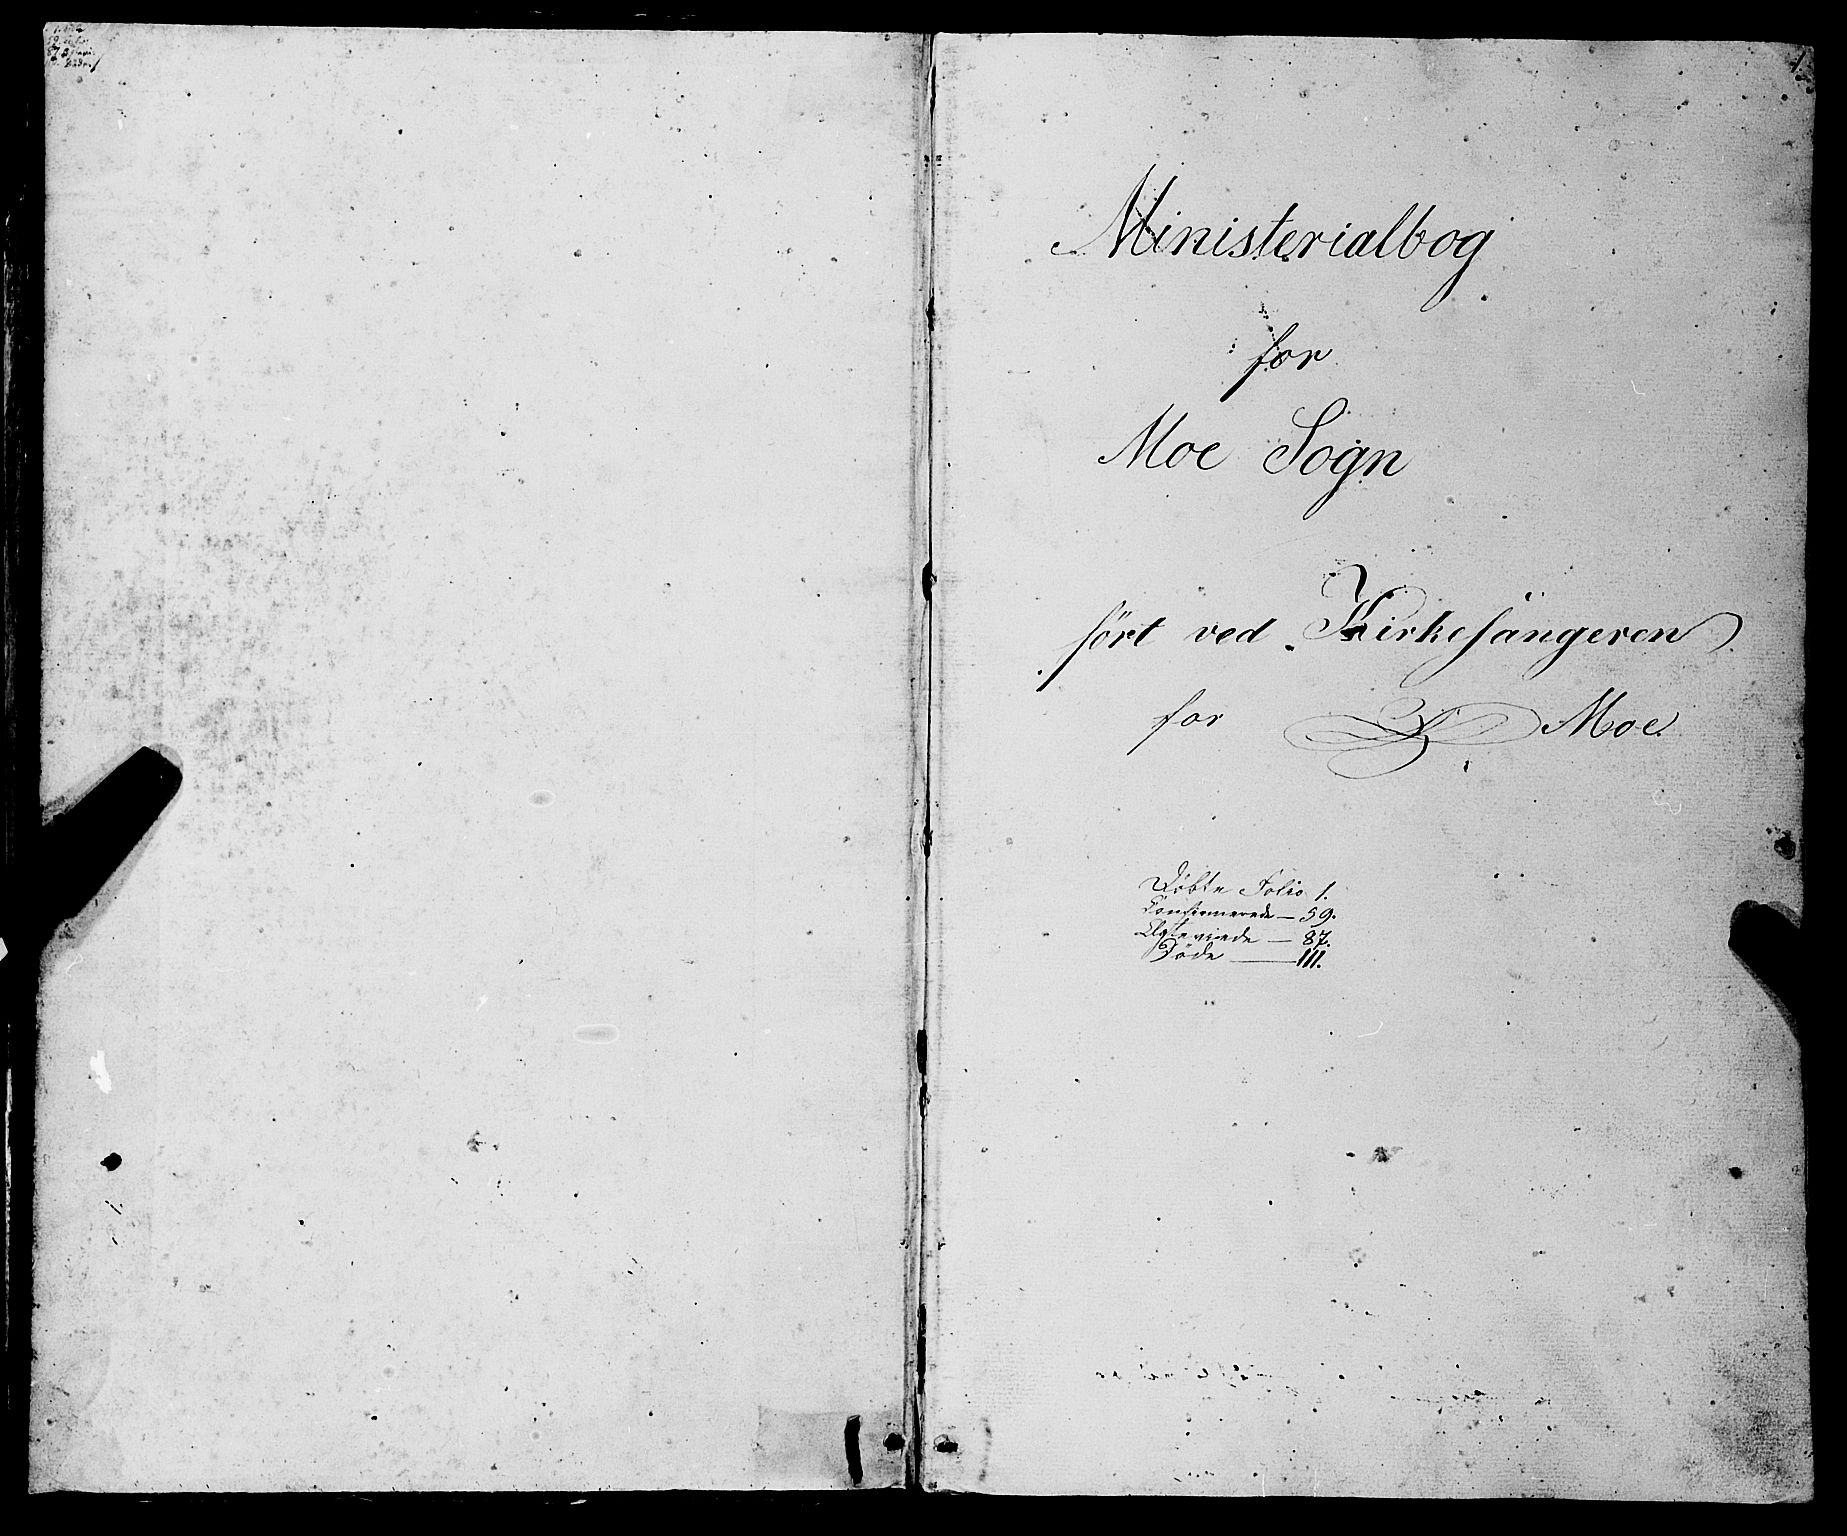 1.
Ministerialbog
for
Moe Sogn
ført ved Kirkesängeren
for Moe.
Döbte Folio 1.
Confirmerede — 59.
Ægteviede — 87.
Döde — 111.